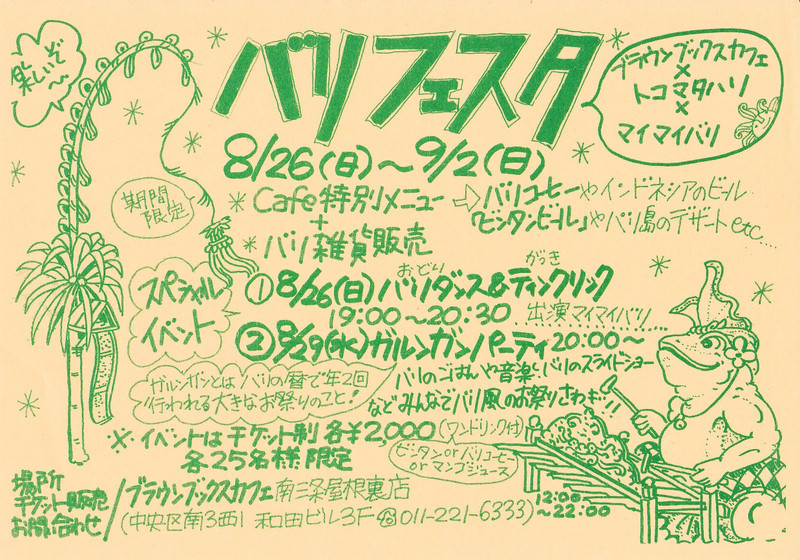 楽しいぞ〜
バリフェスタ
ブラウンブックスカフェ
×
トコマタハリ
×
マイマイバリ
8/26(日)〜9/2(日)
期間限定
Cafe特別メニュー ⇨ バリコーヒーやインドネシアのビール
「ビンタンビール」やバリ島のデザートetc....
+
バリ雑貨販売
スペシャル
イベント
おどり がっき
① 8/26(日)バリダンス&ティンクリック
19:00〜20:30 出演マイマイバリ......
② 8/29(水)ガルンガンパーティ 20:00〜
バリのごはんや音楽とバリのスライドショー
などみんなでバリ風のお祭りさわぎ!!
ガルンガンとはバリの暦で年2回
行われる大きなお祭りのこと!
※イベントはチケット制 各¥2,000(ワンドリンク付)
各25名様限定
ビンタンorバリコーヒー
orマンゴジュース
場所
チケット販売
お問い合わせ
ブラウンブックスカフェ南三条屋根裏店
(中央区南3西1 和田ビル3F ☎011-221-6333)
12:00
〜22:00